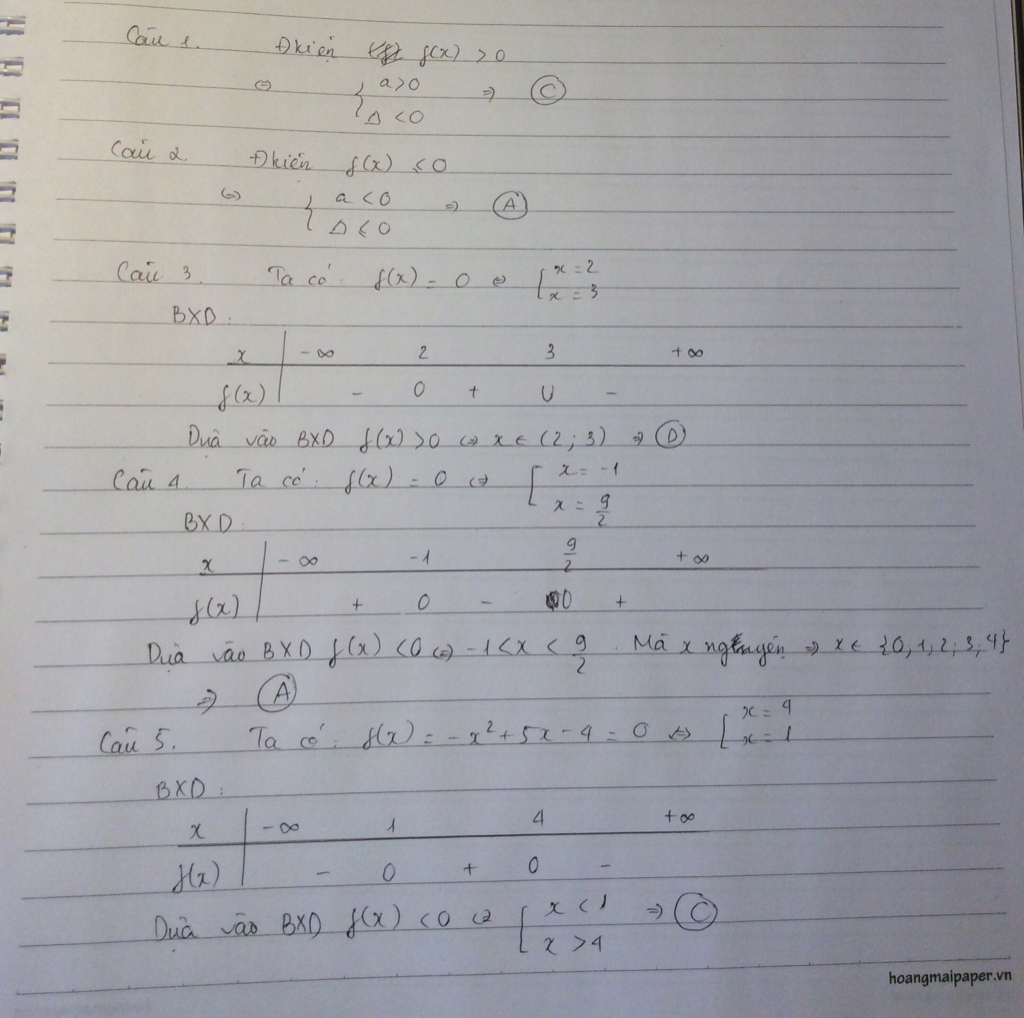 Câu 1. Đkiện f(x) > 0
⇔ { a>0 ⇒ Ⓒ
Δ <0
Câu 2 Đkiện f(x) ≤ 0
⇔ { a < 0 ⇒ Ⓐ
Δ ≤ 0
Câu 3. Ta có: f(x) = 0 ⇔ [ x = 2
x = 3
BXD:
x | -∞ 2 3 +∞
f(x) | - 0 + 0 -
Dựa vào BXD f(x) >0 ⇔ x ∈ (2; 3) ⇒ Ⓓ
Câu 4. Ta có: f(x) = 0 ⇔ [ x = -1
x = 9/2
BXD:
x | -∞ -1 9/2 +∞
f(x) | + 0 - 0 +
Dựa vào BXD f(x) < 0 ⇔ -1 < x < 9/2. Mà x nguyên ⇒ x ∈ {0, 1, 2; 3, 4}
⇒ Ⓐ
Câu 5. Ta có: f(x) = -x² + 5x - 4 = 0 ⇔ [ x = 4
x = 1
BXD:
x | -∞ 1 4 +∞
f(x) | - 0 + 0 -
Dựa vào BXD f(x) < 0 ⇔ [ x < 1 ⇒ Ⓒ
x > 4
hoangmaipaper.vn